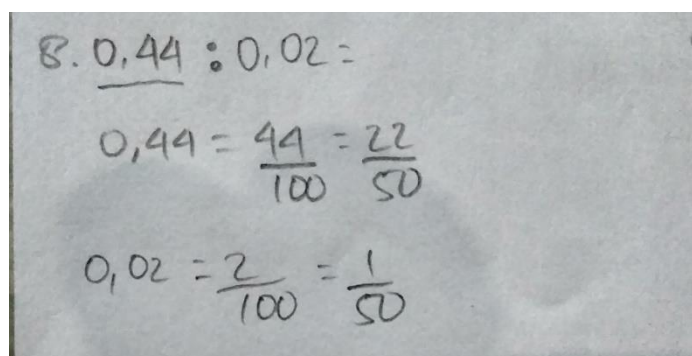 8. 0,44 : 0,02 =
0,44 = 44/100 = 22/50
0,02 = 2/100 = 1/50